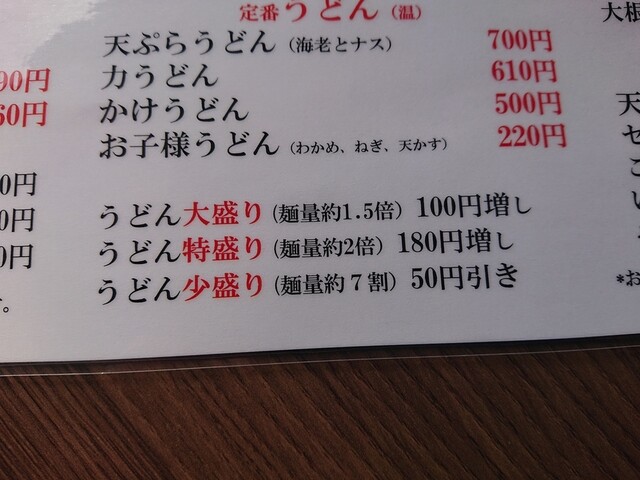 定番うどん（温）
天ぷらうどん（海老とナス） 700円
力うどん 610円
かけうどん 500円
お子様うどん（わかめ、ねぎ、天かす） 220円
うどん大盛り（麺量約1.5倍） 100円増し
うどん特盛り（麺量約2倍） 180円増し
うどん少盛り（麺量約７割） 50円引き
90円
60円
0円
0円
0円
す。
大根
天
セ
こ
い
*お